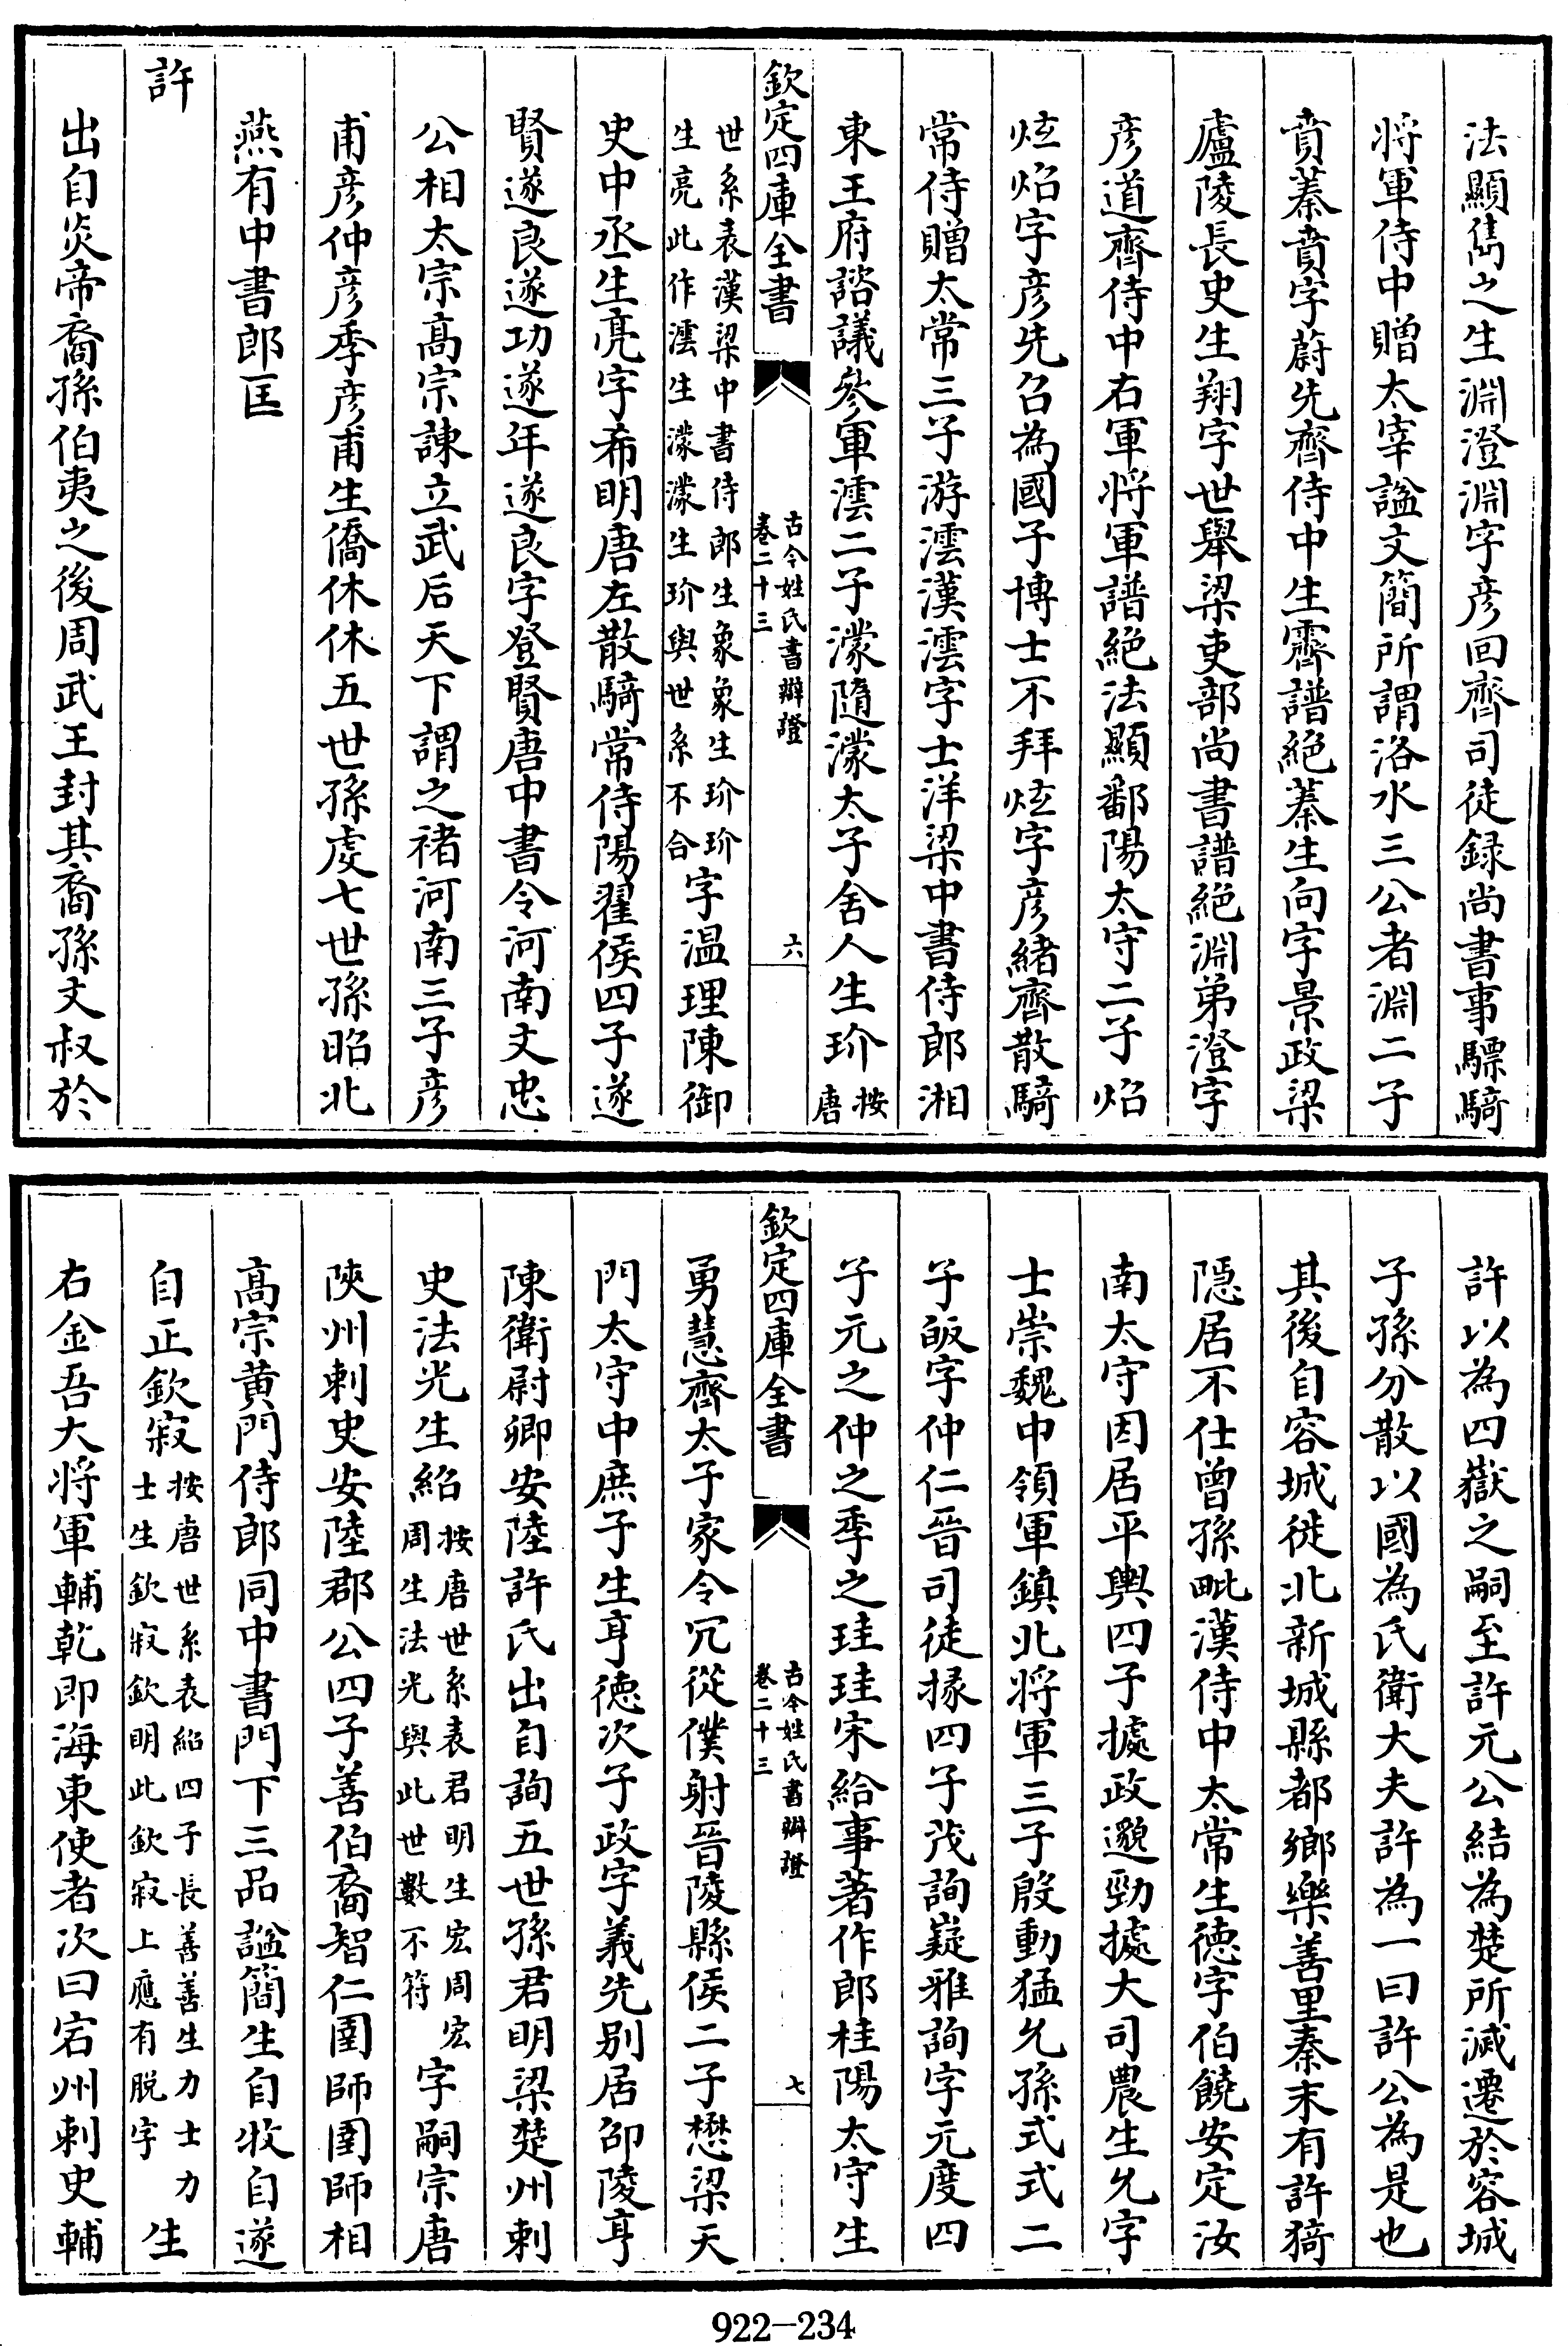 法顯雋之生淵澄淵字彦回齊司徒録尚書事驃騎
将軍侍中贈太宰諡文簡所謂洛水三公者淵二子
賁蓁賁字蔚先齊侍中生霽譜絶蓁生向字景政梁
廬陵長史生翔字世舉梁吏部尚書譜絶淵弟澄字
彦道齊侍中右軍将軍譜絶法顯鄱陽太守二子焰
炫焰字彦先召為國子博士不拜炫字彦緒齊散騎
常侍贈太常三子游澐漢澐字士洋梁中書侍郎湘
東王府諮議參軍澐二子濛隨濛太子舍人生玠按唐
欽定四庫全書
古今姓氏書辯證
卷二十三
六
世系表漢梁中書侍郎生象象生玠玠
生亮此作澐生濛濛生玠與世系不合字温理陳御
史中丞生亮字希明唐左散騎常侍陽翟侯四子遂
賢遂良遂功遂年遂良字登賢唐中書令河南文忠
公相太宗髙宗諫立武后天下謂之禇河南三子彦
甫彦仲彦季彦甫生僑休休五世孫虔七世孫昭北
燕有中書郎匡
許
出自炎帝裔孫伯夷之後周武王封其裔孫文叔於
許以為四嶽之嗣至許元公結為楚所滅遷於容城
子孫分散以國為氏衛大夫許為一曰許公為是也
其後自容城徙北新城縣都鄉樂善里秦末有許猗
隠居不仕曽孫毗漢侍中太常生徳字伯饒安定汝
南太守因居平輿四子㩀政邈勁㩀大司農生允字
士崇魏中領軍鎮北将軍三子殷動猛允孫式式二
子皈字仲仁晉司徒掾四子茂詢嶷雅詢字元度四
子元之仲之季之珪珪宋給事著作郎桂陽太守生
欽定四庫全書
古今姓氏書辯證
卷二十三
七
勇慧齊太子家令冗從僕射晉陵縣侯二子懋梁天
門太守中庶子生亨徳次子政字義先別居邵陵亨
陳衛尉卿安陸許氏出自詢五世孫君明梁楚州刺
史法光生紹按唐世系表君明生宏周宏
周生法光與此世數不符字嗣宗唐
陜州刺史安陸郡公四子善伯裔智仁圉師圉師相
髙宗黄門侍郎同中書門下三品諡簡生自牧自遂
自正欽寂按唐世系表紹四子長善善生力士力
士生欽寂欽明此欽寂上應有脱字生
右金吾大将軍輔乾即海東使者次曰宕州刺史輔
922-234